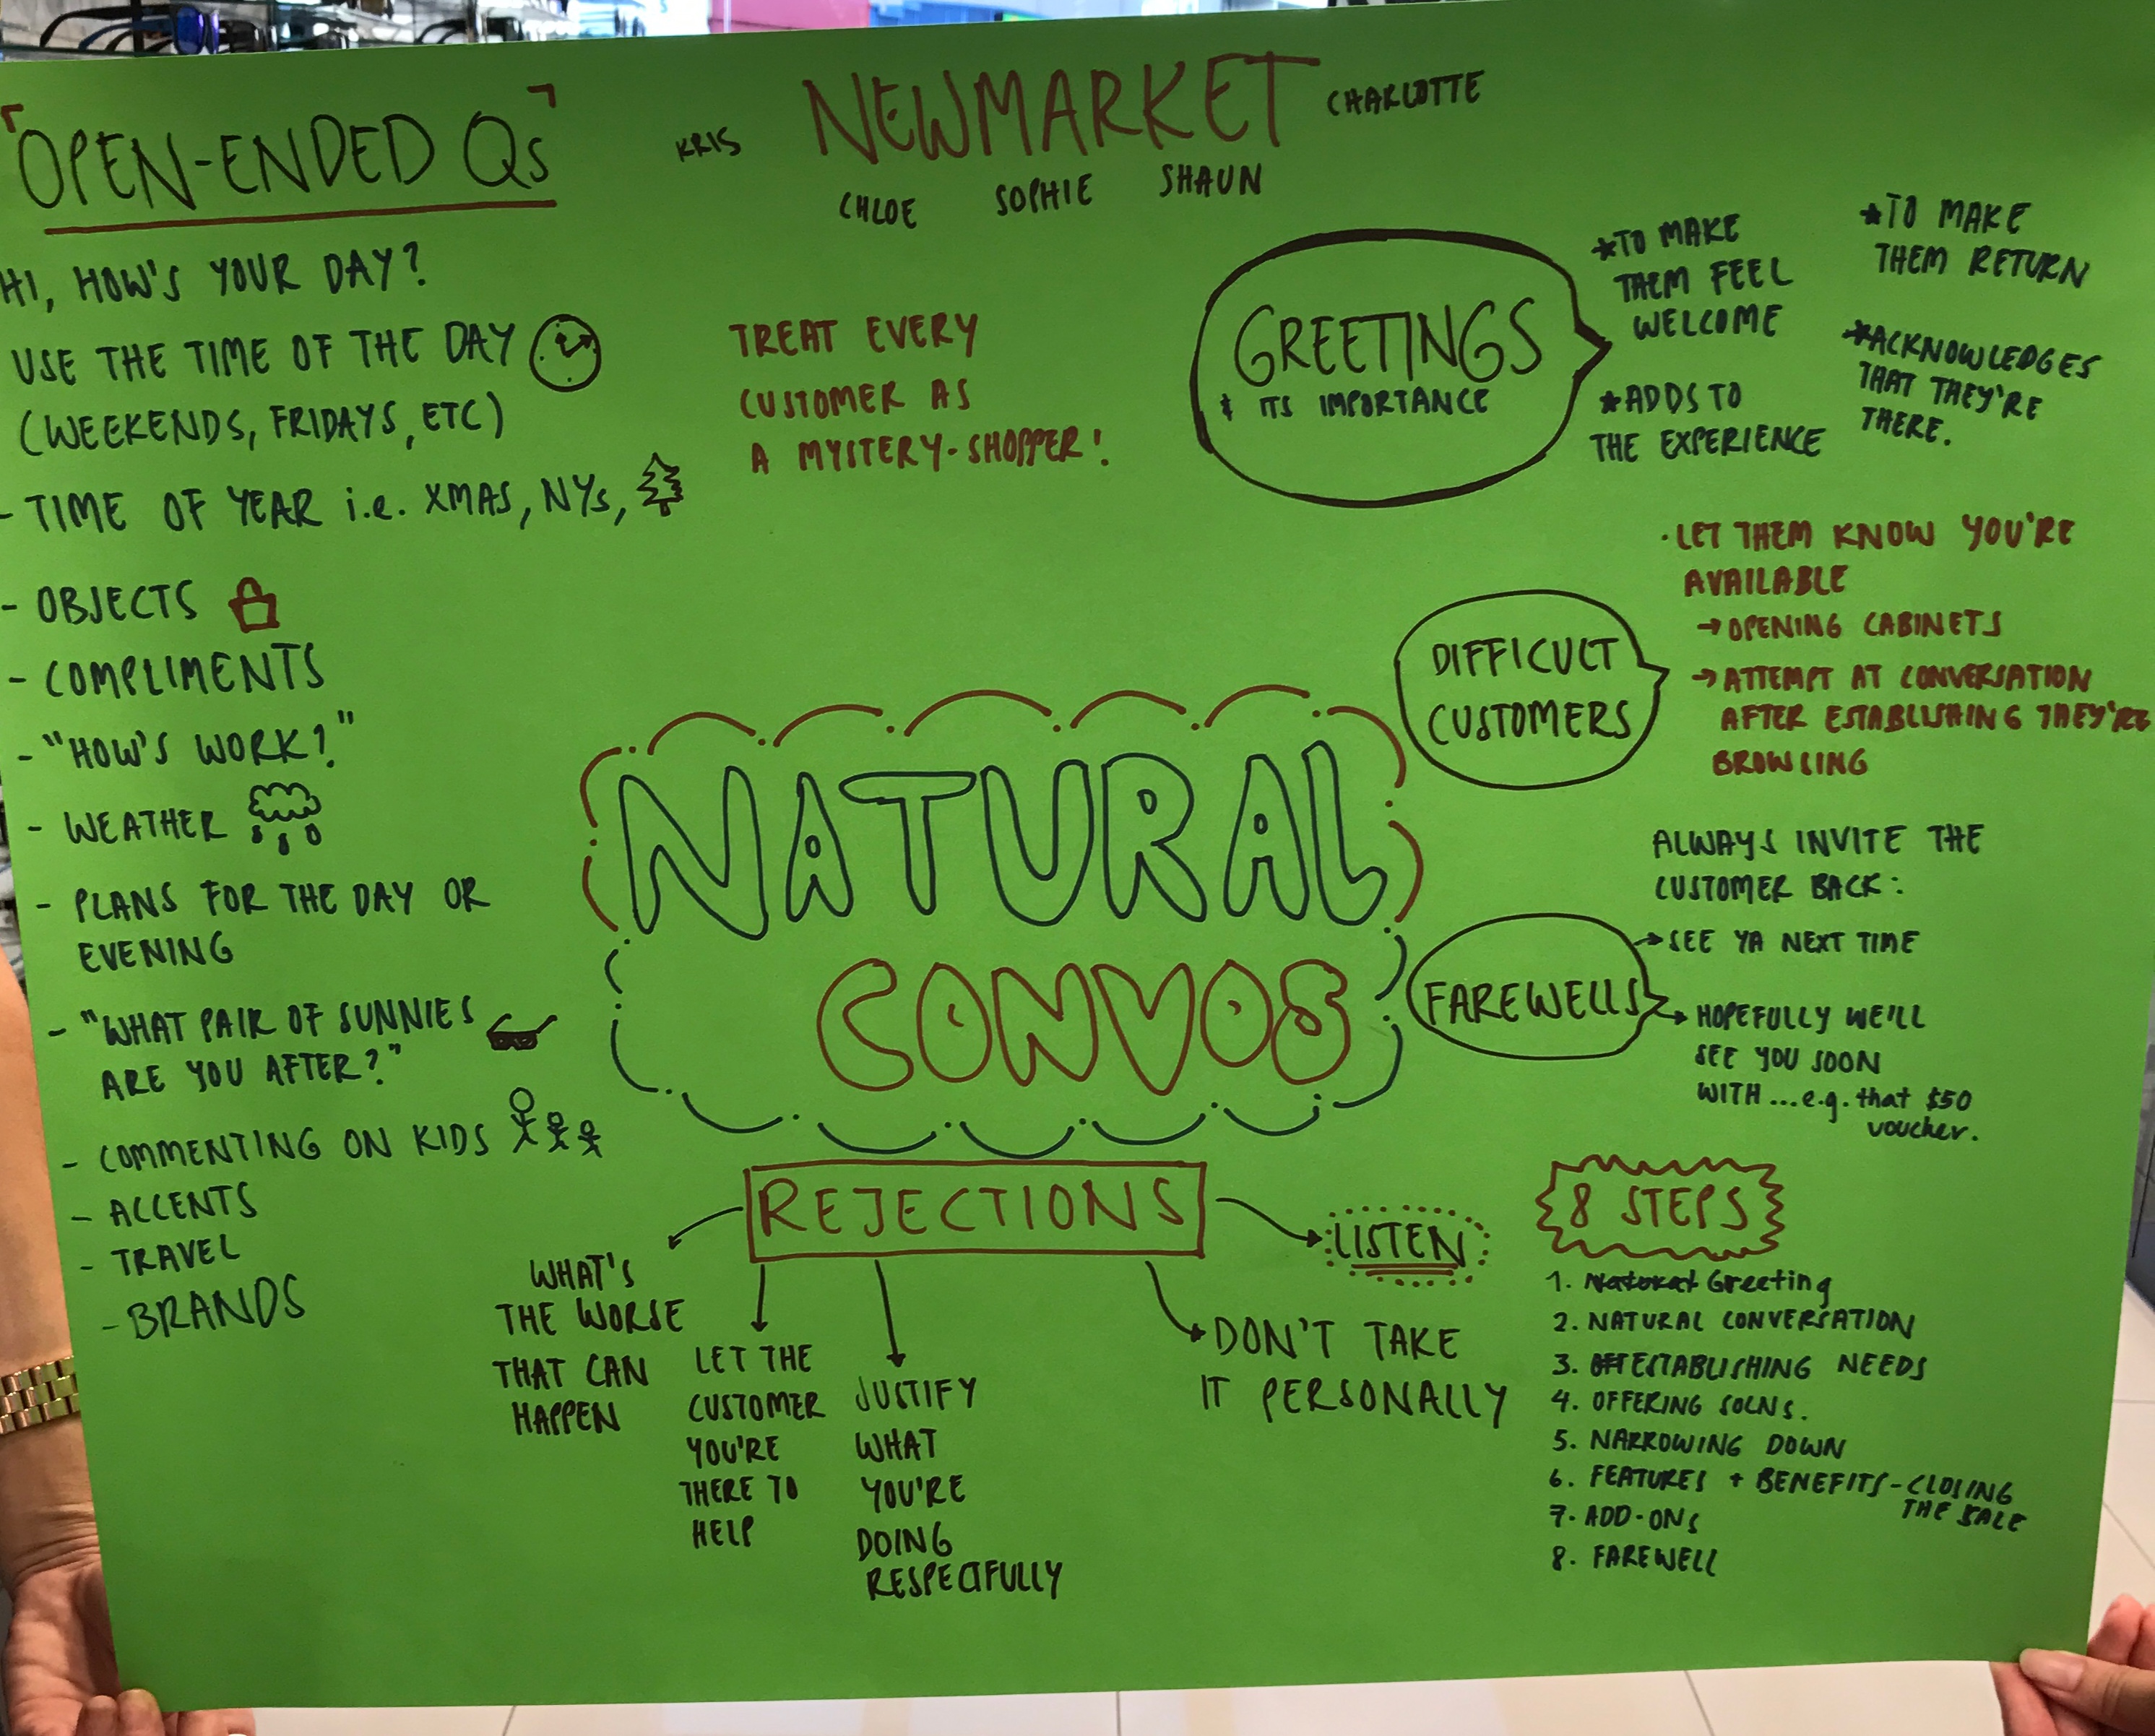 OPEN-ENDED Qs
HI, HOW'S YOUR DAY?
USE THE TIME OF THE DAY
(WEEKENDS, FRIDAYS, ETC)
- TIME OF YEAR i.e. XMAS, NYs,
- OBJECTS
- COMPLIMENTS
- "HOW'S WORK?"
- WEATHER
- PLANS FOR THE DAY OR
EVENING
- "WHAT PAIR OF SUNNIES
ARE YOU AFTER?"
- COMMENTING ON KIDS
- ACCENTS
- TRAVEL
- BRANDS
NEWMARKET
KRIS
CHARLOTTE
CHLOE
SOPHIE
SHAUN
TREAT EVERY
CUSTOMER AS
A MYSTERY-SHOPPER!
GREETINGS
& ITS IMPORTANCE
*TO MAKE
THEM FEEL
WELCOME
*TO MAKE
THEM RETURN
*ADDS TO
THE EXPERIENCE
*ACKNOWLEDGES
THAT THEY'RE
THERE.
DIFFICULT
CUSTOMERS
· LET THEM KNOW YOU'RE
AVAILABLE
→ OPENING CABINETS
→ ATTEMPT AT CONVERSATION
AFTER ESTABLISHING THEY'RE
BROWSING
NATURAL
CONVOS
FAREWELLS
ALWAYS INVITE THE
CUSTOMER BACK:
→ SEE YA NEXT TIME
→ HOPEFULLY WE'LL
SEE YOU SOON
WITH ... e.g. that $50
voucher.
REJECTIONS
WHAT'S
THE WORSE
THAT CAN
HAPPEN
LET THE
CUSTOMER
YOU'RE
THERE TO
HELP
JUSTIFY
WHAT
YOU'RE
DOING
RESPECTFULLY
DON'T TAKE
IT PERSONALLY
LISTEN
8 STEPS
1. Natural Greeting
2. NATURAL CONVERSATION
3. ESTABLISHING NEEDS
4. OFFERING SOLNS.
5. NARROWING DOWN
6. FEATURES + BENEFITS - CLOSING
THE SALE
7. ADD-ONS
8. FAREWELL